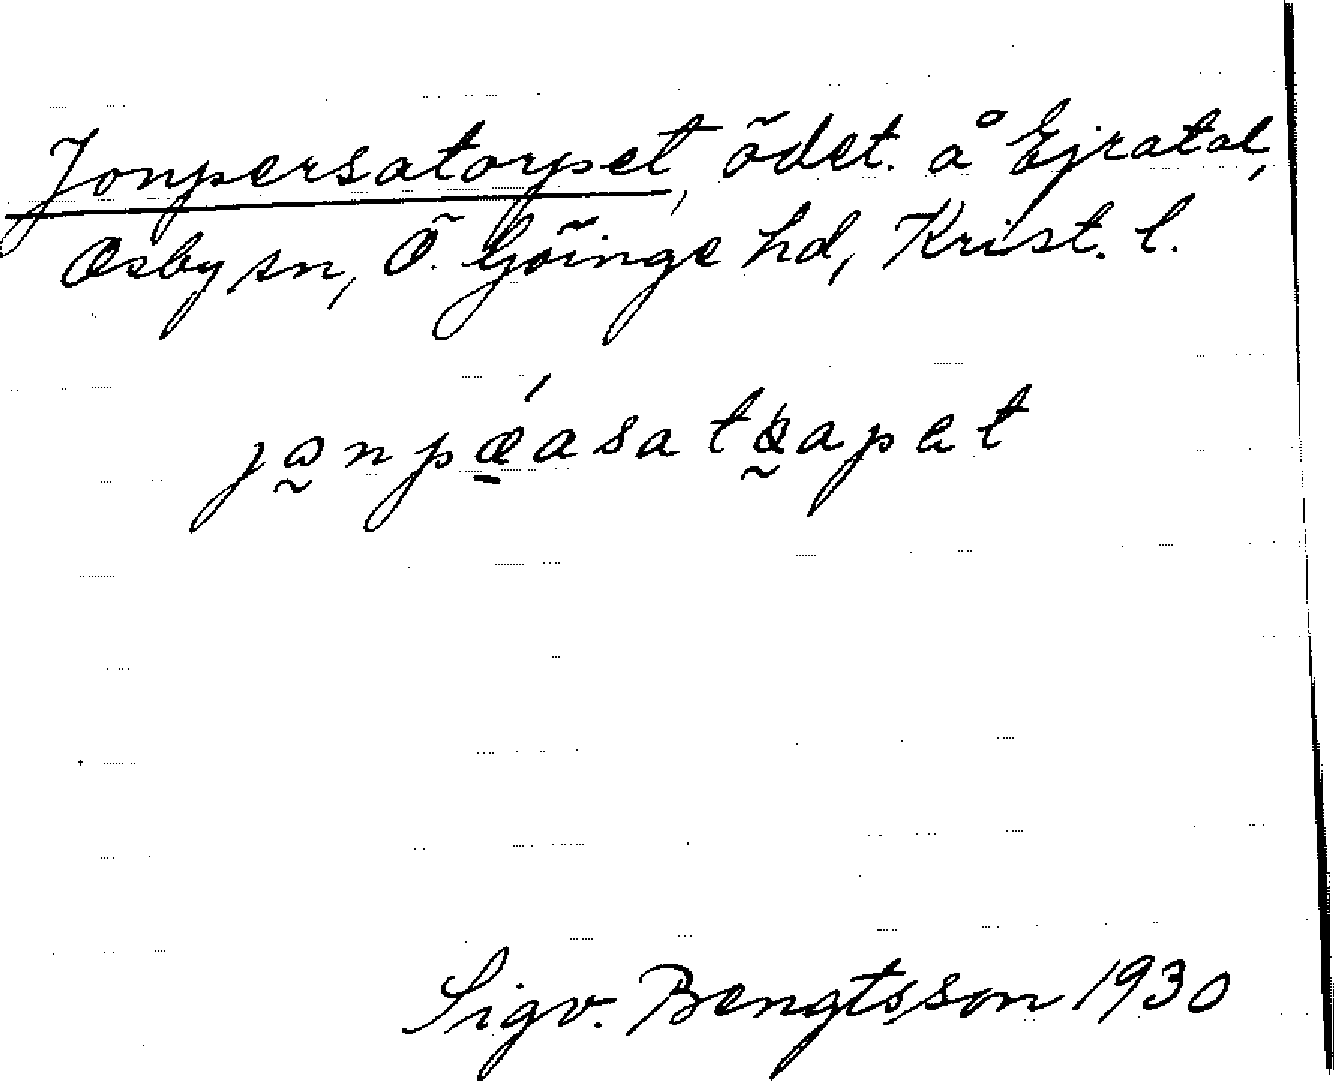 Jonpersatorpet, ödet. å Ejratal,
Osby sn, Ö. Göinge hd, Krist. l.
Sigv. Bengtsson 1930